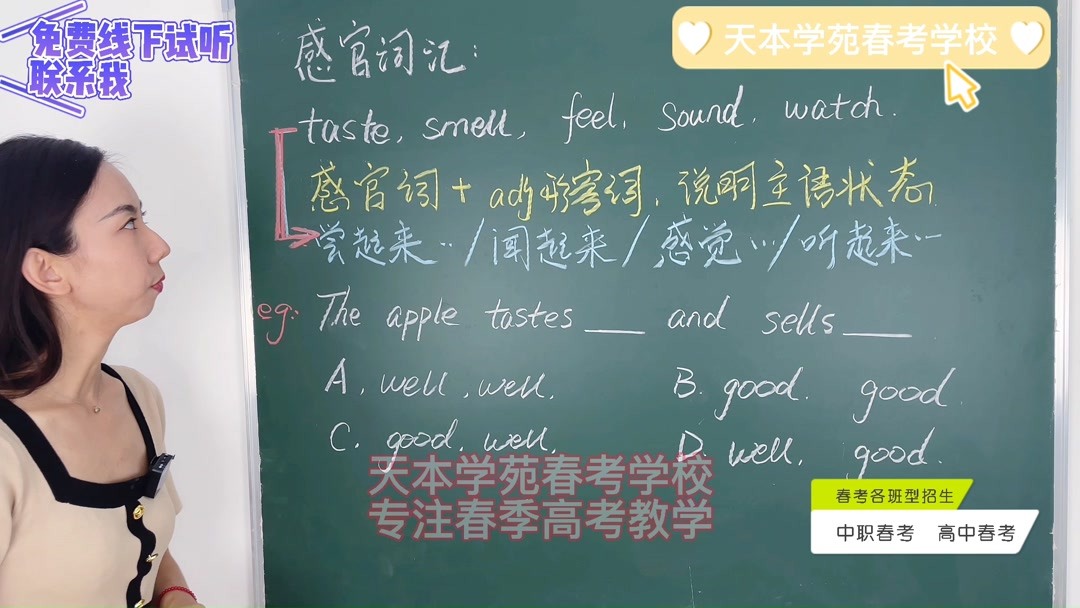 免费线下试听
联系我
天本学苑春考学校
感官词记:
taste, smell, feel, sound, watch.
感官词+adj形容词,说明主语状态,
尝起来··/闻起来/感觉···/听起来··
eg: The apple tastes ___ and sells ___
A. well, well. B. good. good.
C. good, well, D. well, good.
天本学苑春考学校
专注春季高考教学
春考各班型招生
中职春考 高中春考